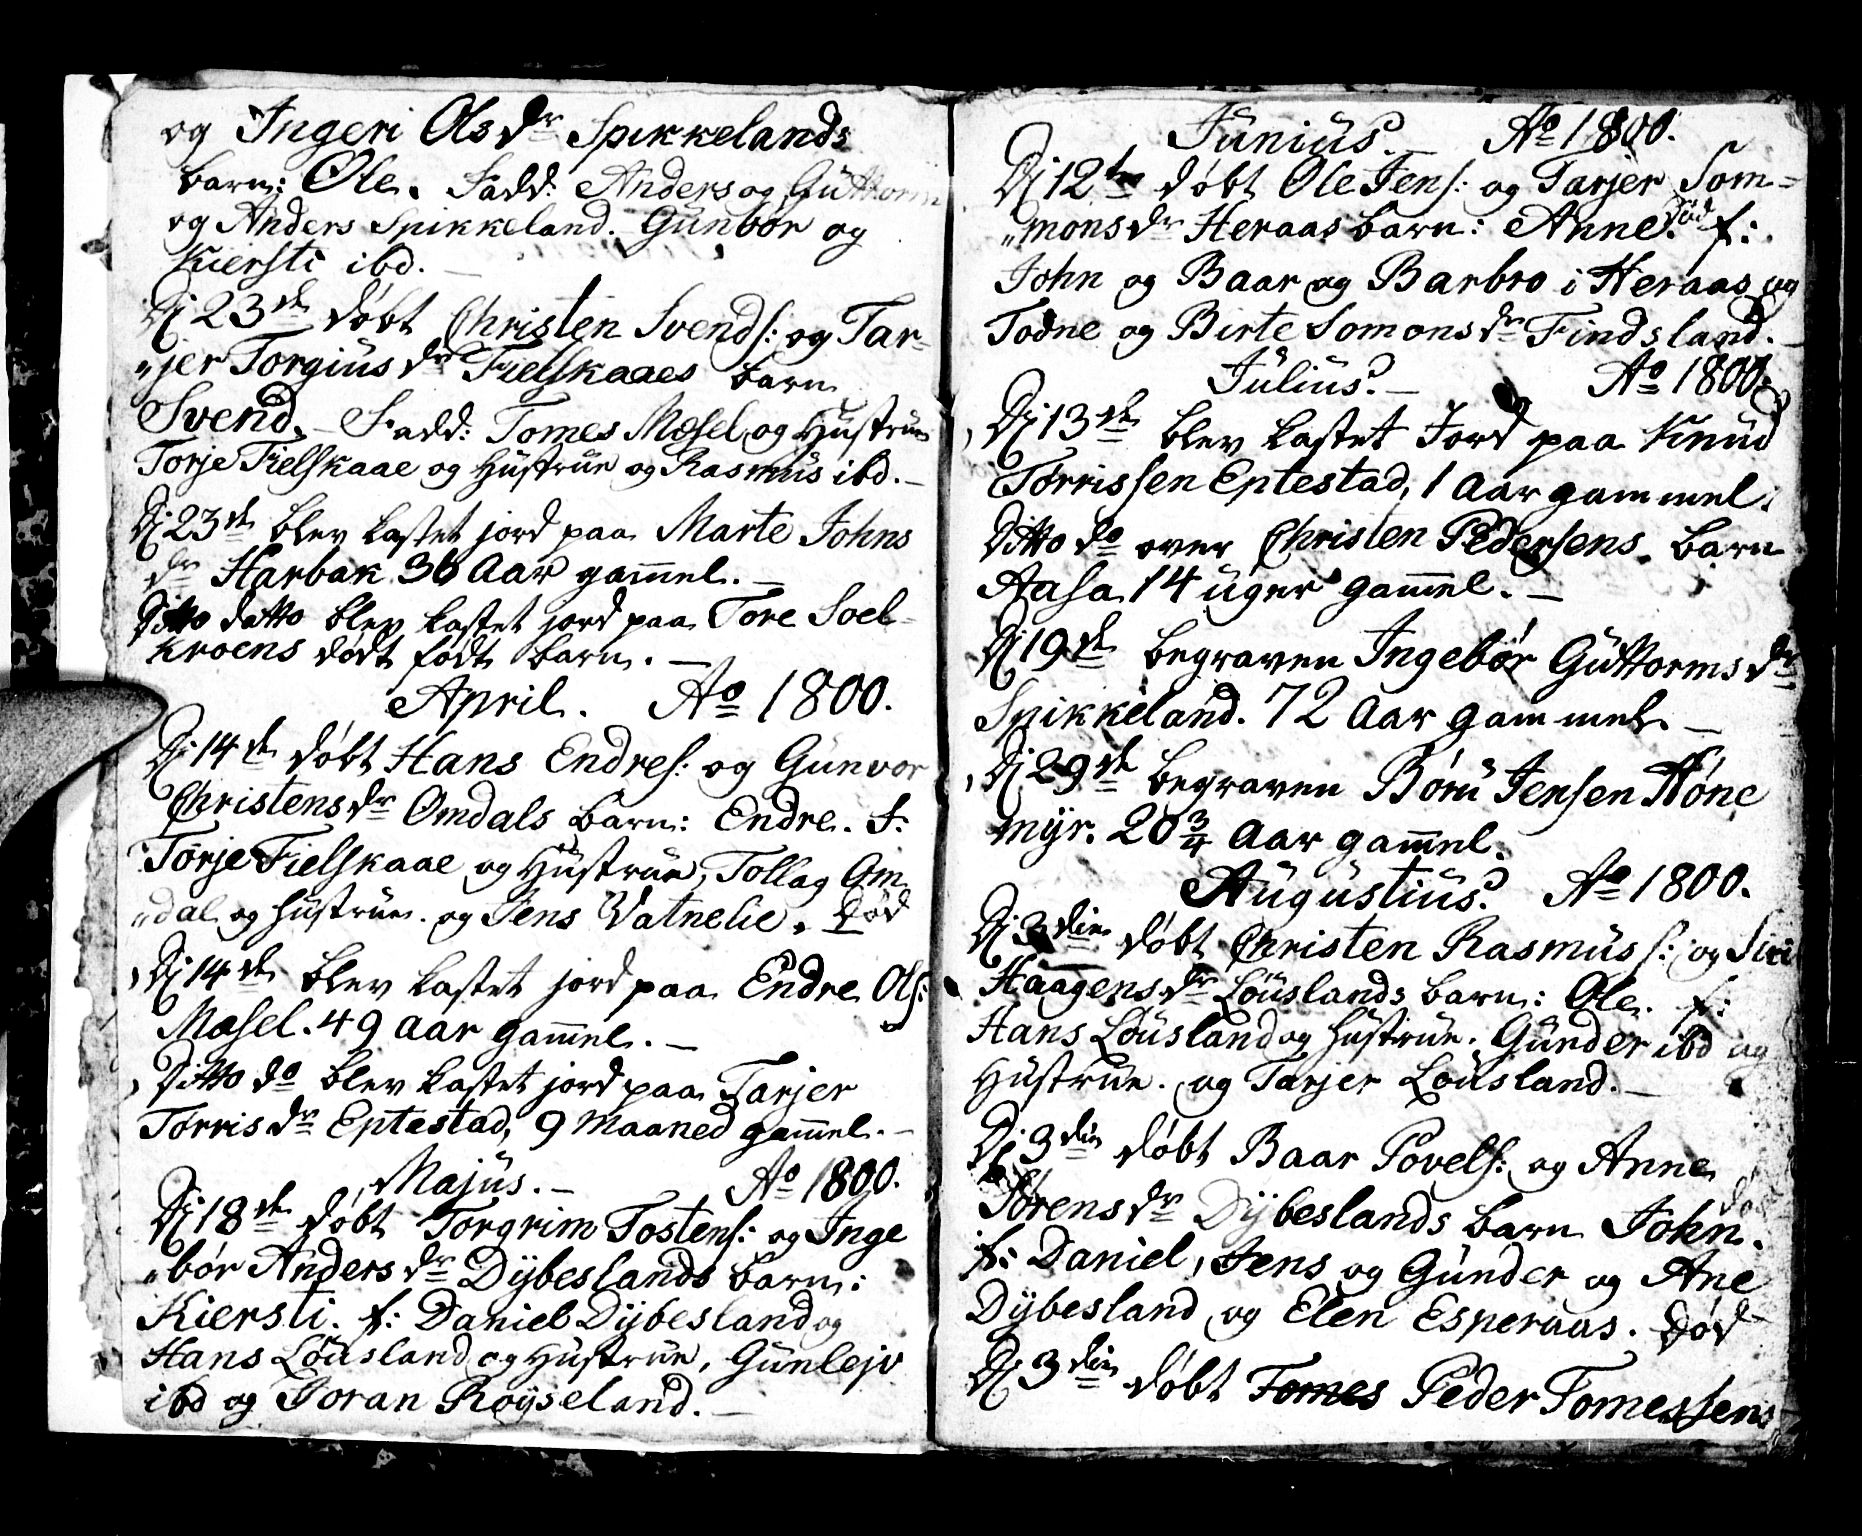 og Ingeri Olsdr Spikkelands
barn: Ole. Fadd: Anders og Guttorm
og Anders Spikkeland. Gunbør og
Kiersti ibd. —
Dj 23de døbt Christen Svends: og Tar-
„jer Torgiusdr Fielskaaes barn
Svend. — Fadd: Tomes Mosel og Hustrue
Torje Fielskaae og Hustrue og Rasmus ibd. —
Dj 23de blev kastet jord paa Marte Johns
dr Harbak 36 Aar gam̅el. —
Ditto datto blev kastet jord paa Tore Soel-
kroens dødt født barn. —
April. Ao 1800.
Dj 14de døbt Hans Endres: og Gunvor
Christensdr Omdals barn: Endre. F:
Torje Fielskaae og Hustrue, Tollag Om
„dal og Hustrue. og Jens Vatnelie. Død
Dj 14de blev kastet jord paa Endre Ols:
Mosel. 49 aar gam̅el. —
Ditto do blev kastet jord paa Tarjer
Torrisdr Eptestad, 9 Maaned gam̅el. —
Majus. — Ao 1800.
Dj 18de døbt Torgrim Tostens: og Inge
„bør Andersdr Dÿbeslands barn:
Kiersti. f: Daniel Dÿbesland og
Hans Løusland og Hustrue, Gunlejv
ibd og Joran Røÿseland. —
Junius. — Ao 1800.
Dj 12te døbt Ole Jens: og Tarjer Som=
„monsdr Heraas barn: Anne. død f:
John og Baar og Barbro i Heraas og
Todne og Birte Somonsdr Findsland. —
Julius. — Ao 1800.
Dj 13de blev kastet Jord paa Knud
Torrissen Eptestad, 1 Aar gammel:
Ditto do over Christen Pedersens barn
Aasa 14 uger gam̅el. —
Dj 19de begraven Ingebør Guttormsdr
Spikkeland. 72 Aar gammel. —
Dj 29de begraven Børu Jensen Høne
mÿr. 20 3/4 Aar gam̅el.
Augustius. Ao 1800.
Dj 3die døbt Christen Rasmus s: og Siri
Haagensdr Løuslands barn: Ole. f:
Hans Løusland og Hustrue. Gunder ibd og
Hustrue. og Tarjer Løusland. —
Dj 3die døbt Baar Povels: og Anne
Sørensdr Dÿbeslands barn John. død
f: Daniel, Jens og Gunder og Ane
Dÿbesland og Elen Esperaas. Død
Dj 3die døbt Tomes Peder Tomessens